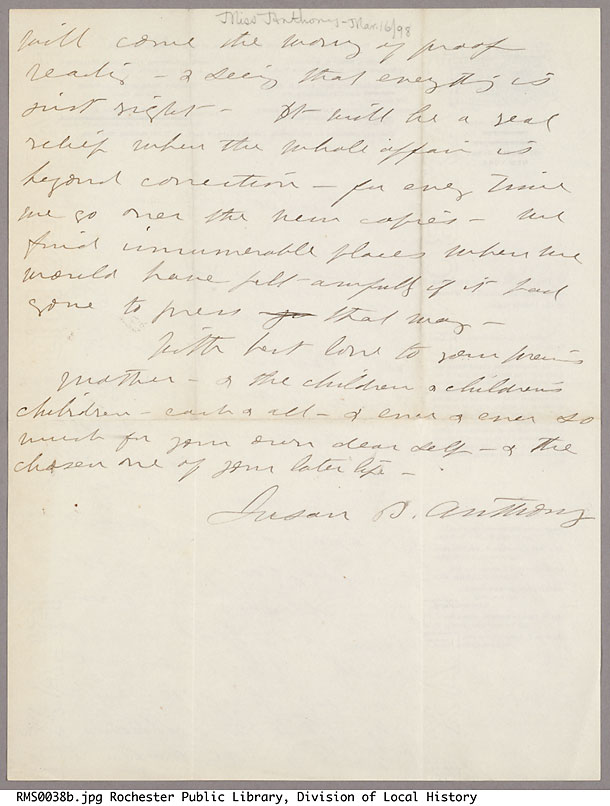 Miss Anthony - Mar. 16/98
will come the worry of proof
reading - & seeing that everything is
just right - It will be a real
relief when the whole affair is
beyond correction - for every time
we go over the new copies - we
find innumerable places where we
would have felt awfully if it had
gone to press that way -
With best love to your precious
mother - & the children & children's
children - each & all - & ever & ever so
much for your own dear self - & the
chosen one of your later life -
Susan B. Anthony
RMS0038b.jpg Rochester Public Library, Division of Local History